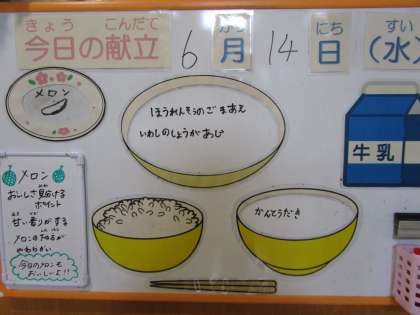 きょう こんだて
今日の献立
6 がつ 月 14 にち 日 すい (水)
メロン
ほうれんそうのごまあえ
いわしのしょうがあじ
牛乳
かんとうだき
メロン
おいしさ見分ける
ポイント
甘い香りがする
やわらかい
今日のメロンも
おいしいよ!!